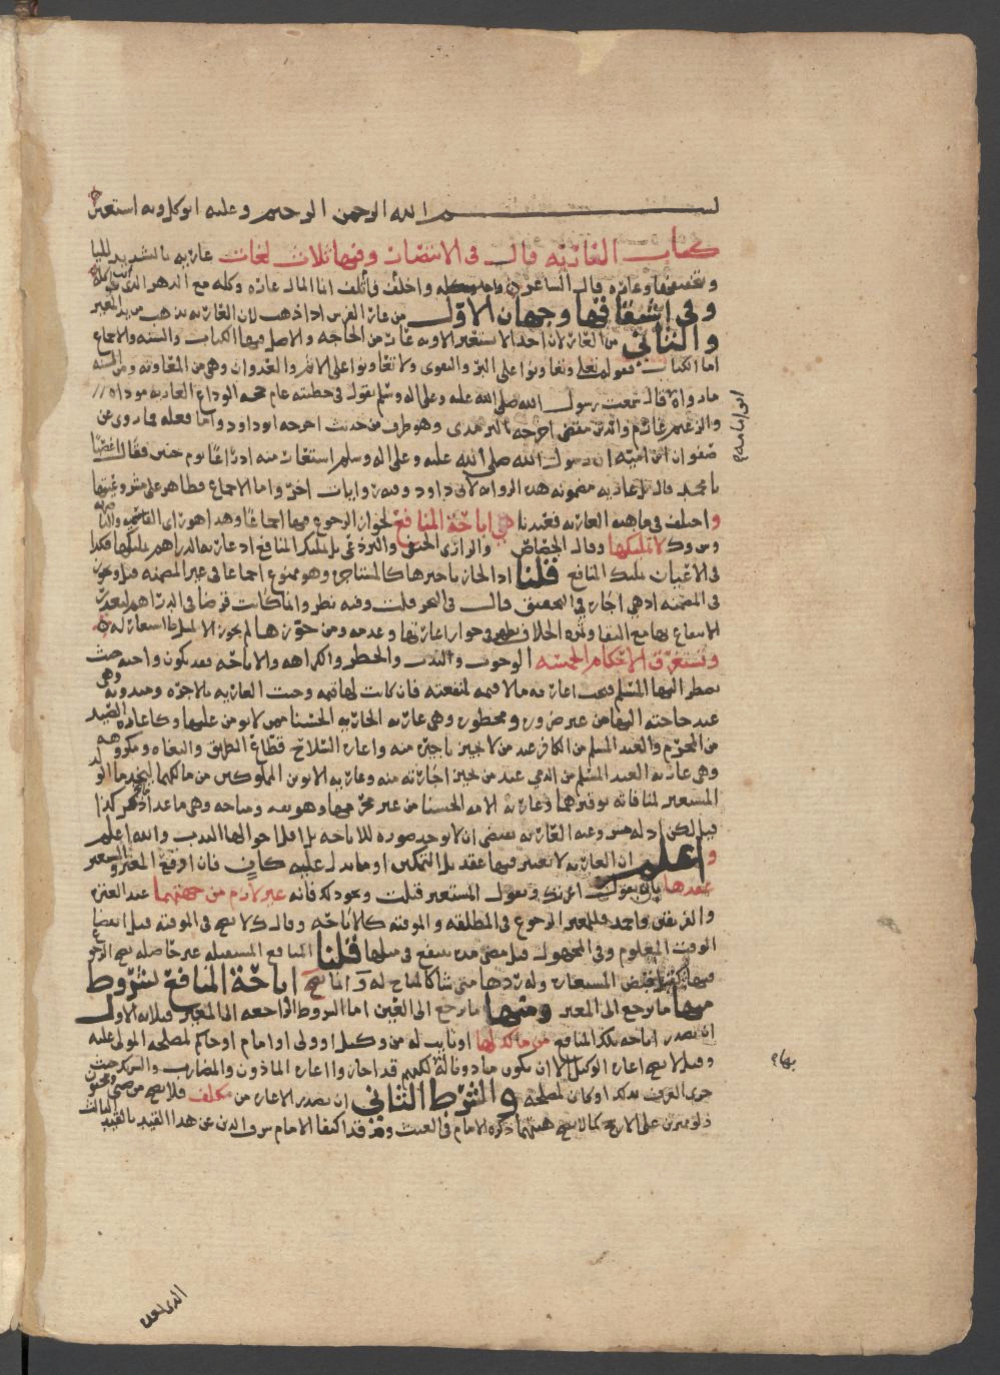 بسم الله الرحمن الرحيم وعليه اتوكل وبه استعين
كتاب العارية قال في الانتصار وفيها ثلاث لغات عارية بالتشديد للياء
وتخفيفها وعاره قال الشاعر واخلف واتلف انما المال عاره وكله مع الدهر الذي هو
وفي اشتقاقها وجهان الاول من عار الفرس اذا ذهب لان العارية تذهب من يد المعير
والثاني من العار لان احدا لا يستعير الا وبه عار من الحاجه والاصل فيها الكتاب والسنه والاجماع
اما الكتاب فقوله تعالى وتعاونوا على البر والتقوى ولا تعاونوا على الاثم والعدوان وهي من المعاونه ومن السنه
ما رواه قال سمعت رسول الله صلى الله عليه وعلى اله وسلم يقول في خطبته عام حجة الوداع العارية موداه
ابو امامه
والزعيم غارم والدين مقضي اخرجه الترمذي وهو طرف من حديث اخرجه ابو داود واما فعله فما روي عن
صفوان ابن اميه ان رسول الله صلى الله عليه وعلى اله وسلم استعار منه ادراعا يوم حنين فقال اغصبا
يا محمد قال بل عارية مضمونه هذه الرواية لابي داود وفيه روايات اخر واما الاجماع فظاهر على مشروعيتها
واختلف في ماهية العارية فعندنا هي اباحة المنافع لجواز الرجوع فيها اجماعا وهذا هو راي القاسميه
لا تمليكها وقال الجصاص والرازي الحنفي والبردعي بل تمليك المنافع اذ عارية الدراهم تمليكها فكذا
في الاعيان تمليك المنافع قلنا اذا لجاز تاجيرها كالمستاجر وهو ممنوع اجماعا في غير المضمنه قيل ويجوز
في المضمنه اذ هي اجاره في التحقيق قال في البحر قلت وفيه نظر وانما كانت قرضا في الدراهم لتعذر
الانتفاع بها مع البقا وثمرة الخلاف تظهر في جواز اعارتها وعدمه ومن جوزها لم يجوز الا لمثل ما استعار له
وتستغرق الاحكام الخمسه الوجوب والندب والحظر والكراهه والاباحه فقد تكون واجبه حيث
يضطر اليها المسلم فيجب اعارة ما لا قيمه لمنفعته فان كانت لها قيمه وجبت العاريه بالاجره ومندوبه وهي
عند حاجته اليها من غير ضروره ومحظوره وهي عارية الجارية الحسنا ممن لا يومن عليها وكاعارة الصيد
من المحرم والعبد المسلم من الكافر عند من لا يجيز تاجيره منه واعارة السلاح قطاع الطريق والبغاه ومكروهه
وهي عارية العبد المسلم من الذمي عند من يجيز اجارته منه وعارية الابوين المملوكين من مالكهما ليخدما الولد
المستعير لمنافاته توقيرهما وعارية الامة الحسنا من غير محرمها وهو ثقه ومباحه وهي ما عدا ذلك هكذا
قيل لكن ادله مشروعية العارية تقتضي ان لا توجد صوره للاباحه بل اقل احوالها الندب والله اعلم
واعلم ان العارية لا يعتبر فيها عقد بل التمكين او ما يدل عليه كاف فان اوقع المعير والمستعير
عقدها بان يقول اعرتك ويقول المستعير قبلت ونحو ذلك فانه غير لازم من جهتهما عند العتره
والفريقين واحمد فللمعير الرجوع في المطلقه والموقته كالاباحه وقال ك لا يصح في الموقته قبل انقضا
الوقت المعلوم وفي المجهول قبل مضي مده ينتفع في مثلها قلنا المنافع المستقبله غير حاصله فصح الرجوع
فيها وله ردها متى شا كالمباح له وانما تصح اباحة المنافع بشروط
منها ما يرجع الى المعير ومنها ما يرجع الى العين اما الشروط الراجعه الى المعير فثلاثه الاول
ان تصدر اباحة تلك المنافع من مالك لها او نايب له من وكيل او ولي او امام او حاكم لمصلحه المولى عليه
وقيل لا تصح اعارة الوكيل الا ان يكون ماذونا له لكنهم قد اجازوا اعارة الماذون والمضارب والشريك حيث
بها
جرى العرف بذلك او كان لمصلحه والشرط الثاني ان تصدر الاعاره من مكلف فلا تصح من صبي ومجنون
ولو مميزين على الارجح كما لا تصح هبتهما ذكره الامام في الغيث وهز قد اكتفا الامام شرف الدين عن هذا القيد بالقيد الثالث